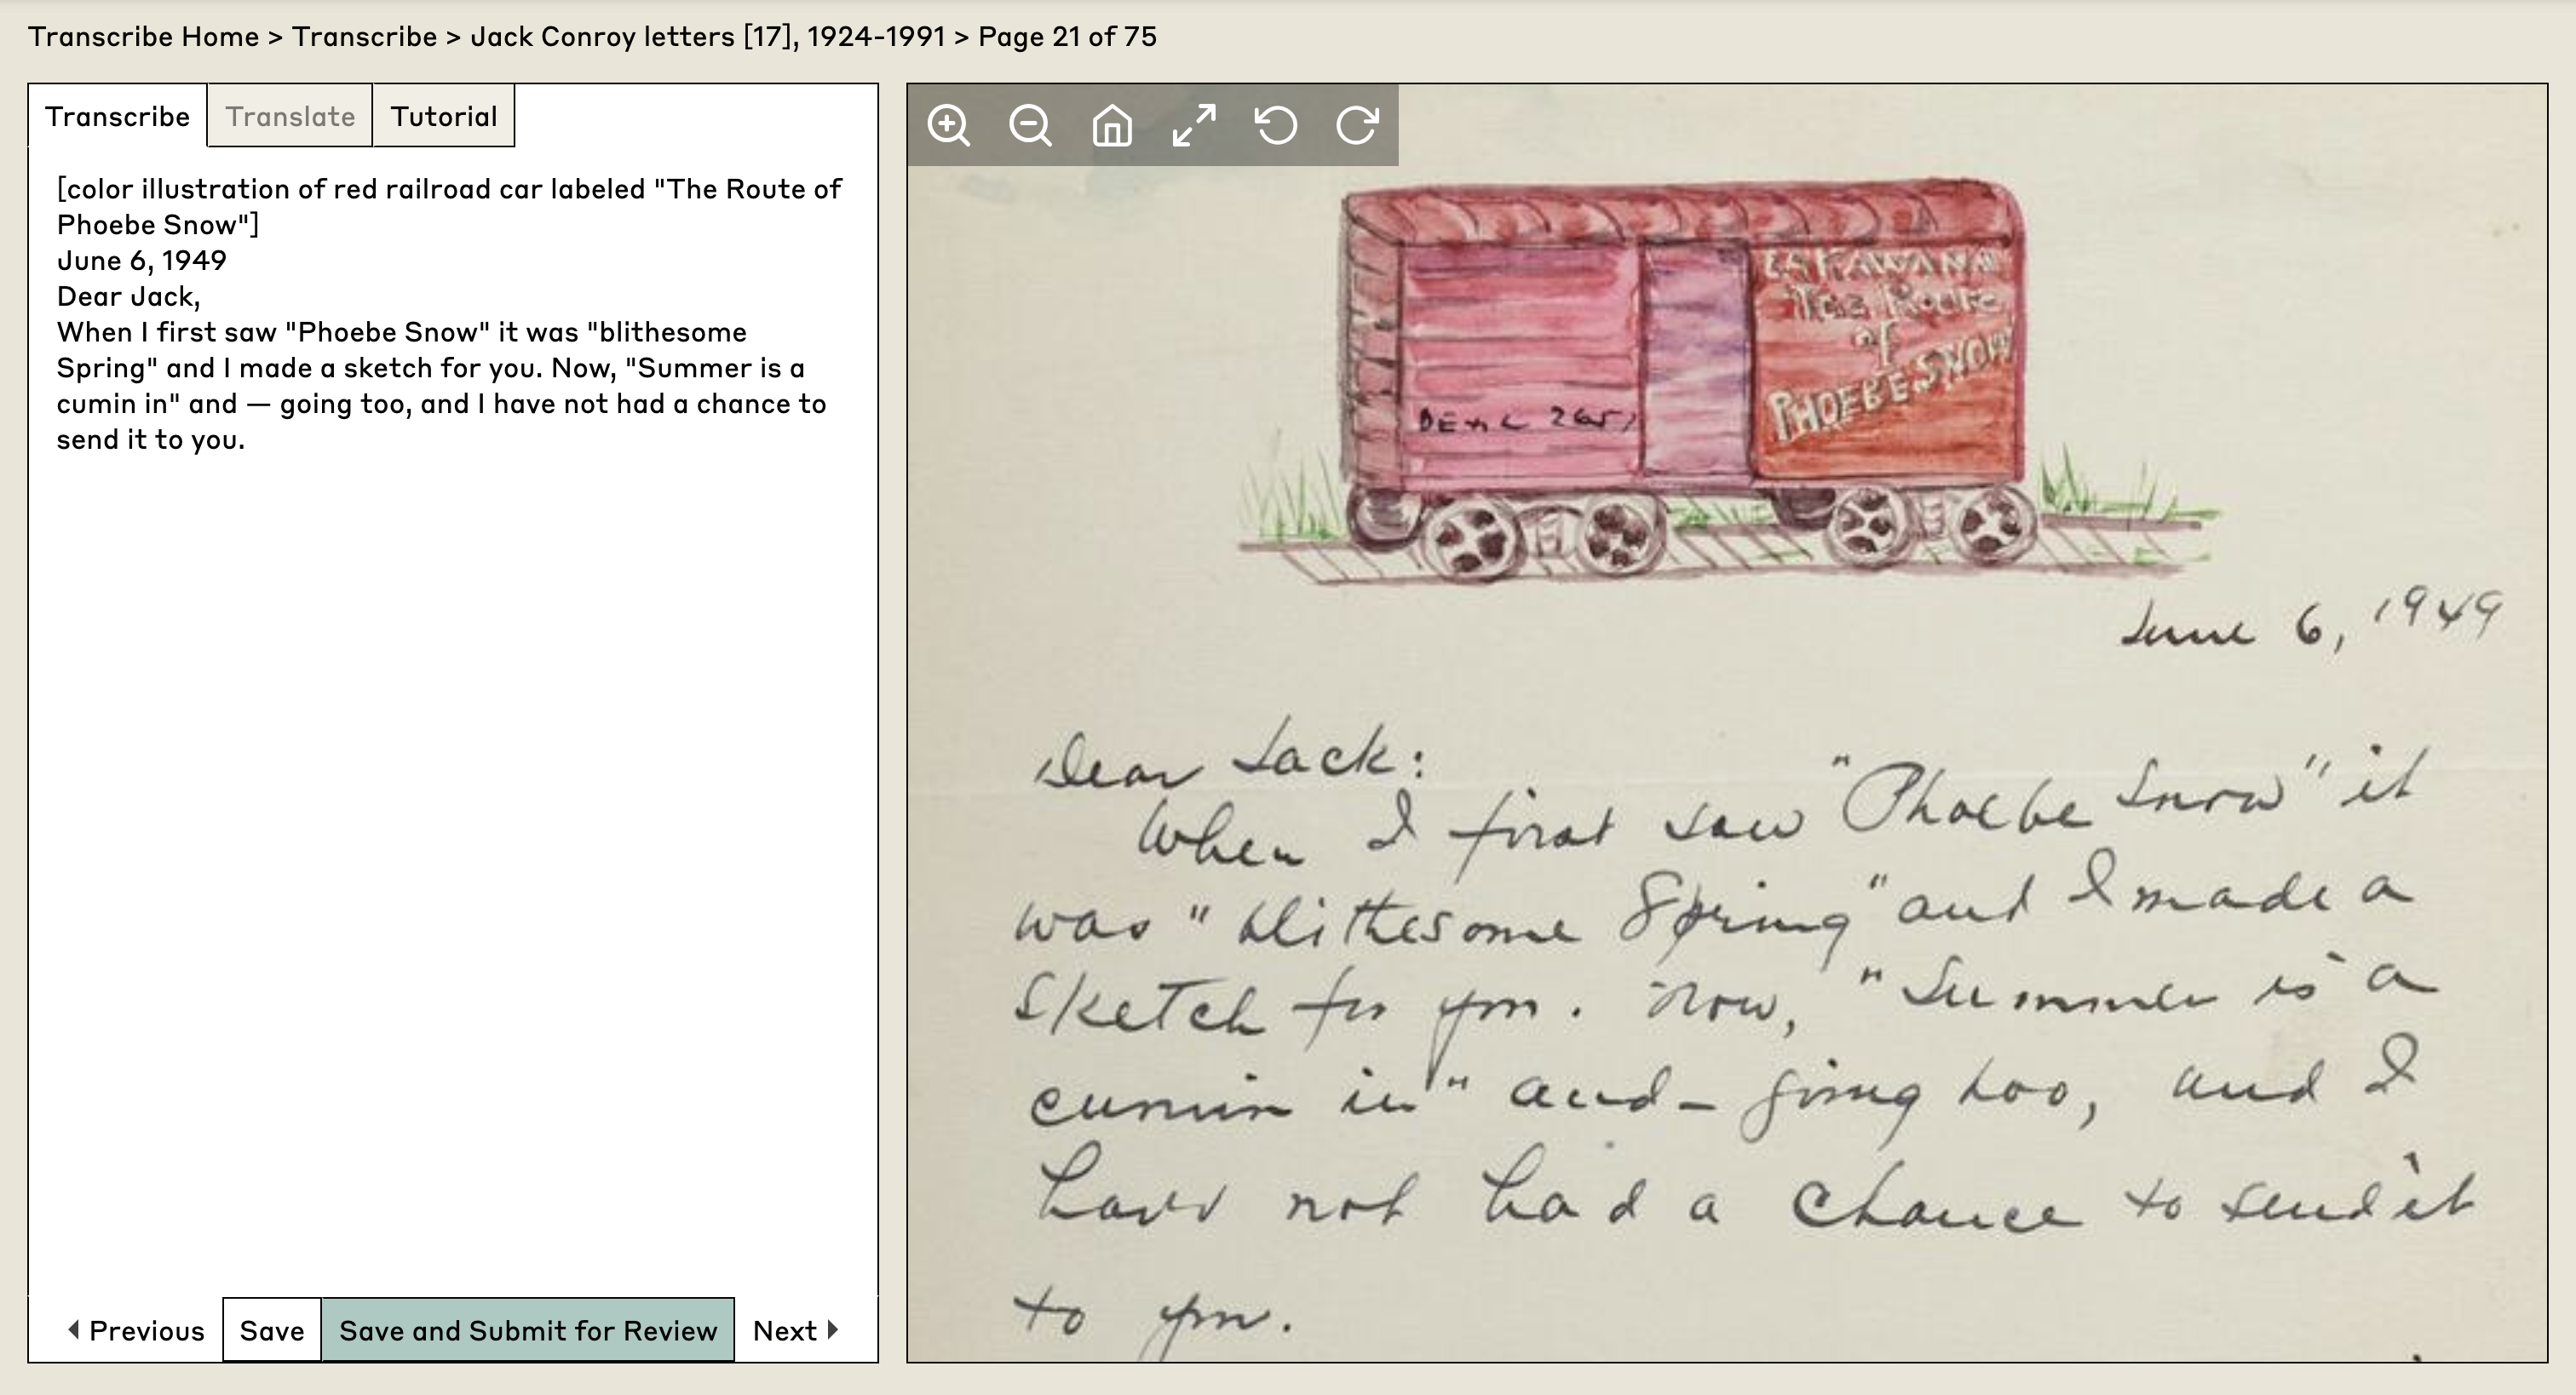 Transcribe Home > Transcribe > Jack Conroy letters [17], 1924-1991 > Page 21 of 75
Transcribe
Translate
Tutorial
[color illustration of red railroad car labeled "The Route of
Phoebe Snow"]
June 6, 1949
Dear Jack,
When I first saw "Phoebe Snow" it was "blithesome
Spring" and I made a sketch for you. Now, "Summer is a
cumin in" and — going too, and I have not had a chance to
send it to you.
Previous
Save
Save and Submit for Review
Next
LAKAWANA
The Route
of
PHOEBE SNOW
June 6, 1949
Dear Jack:
When I first saw "Phoebe Snow" it
was "blithesome Spring" and I made a
sketch for you. Now, "Summer is a
cumin in" and – going too, and I
have not had a chance to send it
to you.